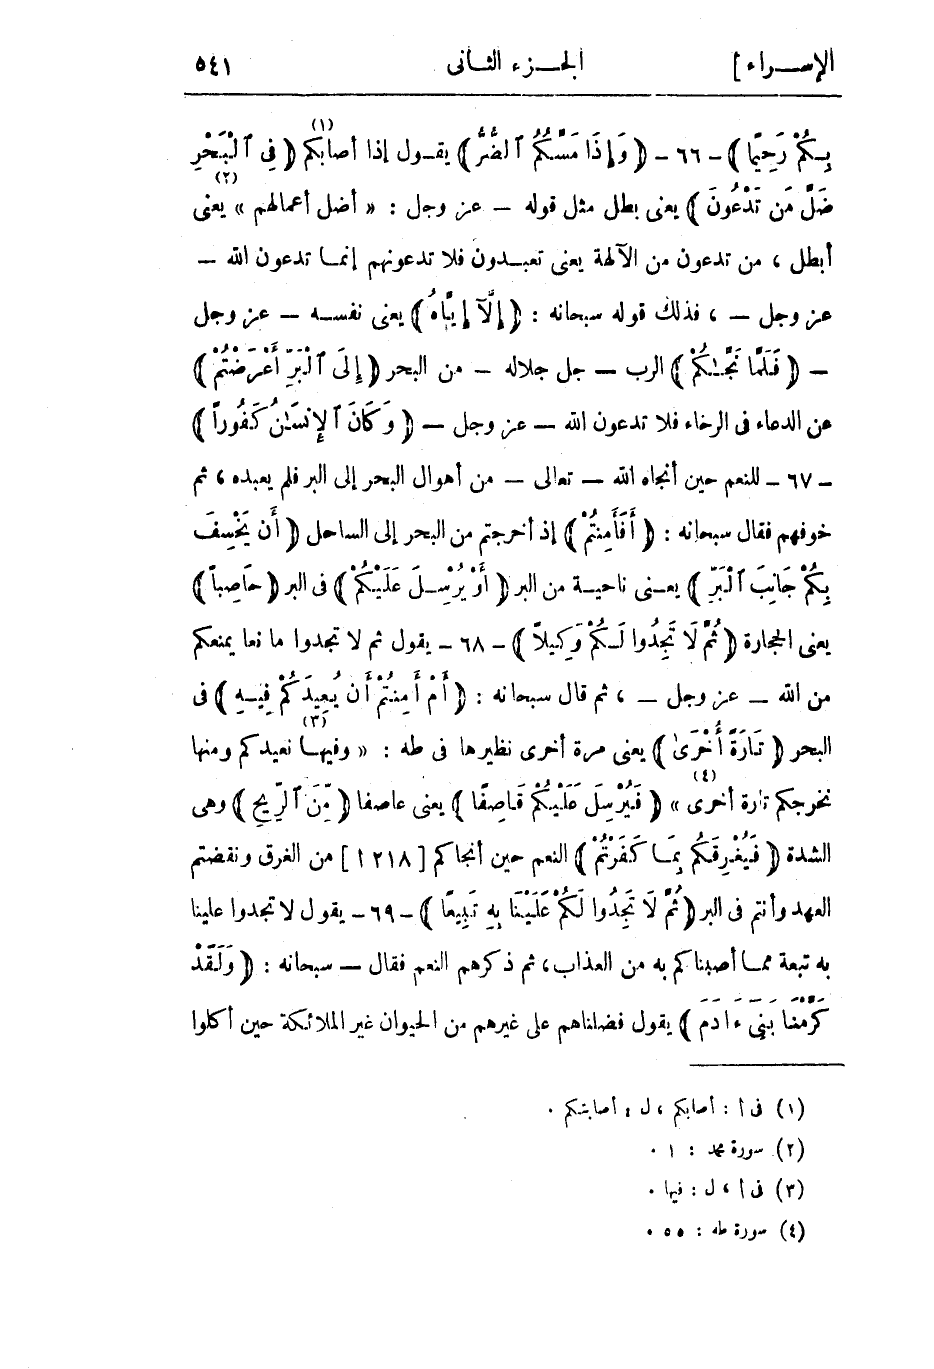 الإسراء] الجزء الثانى ٥٤١
بِكُمْ رَحِيمًا ﴾ - ٦٦ - ﴿ وَإِذَا مَسَّكُمُ ٱلضُّرُّ ﴾ يقول إذا أصابكم (١) ﴿ فِى ٱلْبَحْرِ
ضَلَّ مَن تَدْعُونَ ﴾ يعنى بطل مثل قوله - عز وجل : « أضل أعمالهم » (٢) يعنى
أبطل ، من تدعون من الآلهة يعنى تعبدون فلا تدعونهم إنما تدعون الله -
عز وجل - ، فذلك قوله سبحانه : ﴿ إِلَّآ إِيَّاهُ ﴾ يعنى نفسه - عز وجل
- ﴿ فَلَمَّا نَجَّىٰكُمْ ﴾ الرب - جل جلاله - من البحر ﴿ إِلَى ٱلْبَرِّ أَعْرَضْتُمْ ﴾
عن الدعاء فى الرخاء فلا تدعون الله - عز وجل - ﴿ وَكَانَ ٱلإِنسَٰنُ كَفُورًا ﴾
- ٦٧ - للنعم حين أنجاه الله - تعالى - من أهوال البحر إلى البر فلم يعبده ، ثم
خوفهم فقال سبحانه : ﴿ أَفَأَمِنتُمْ ﴾ إذ أخرجتم من البحر إلى الساحل ﴿ أَن يَخْسِفَ
بِكُمْ جَانِبَ ٱلْبَرِّ ﴾ يعنى ناحية من البر ﴿ أَوْ يُرْسِلَ عَلَيْكُمْ ﴾ فى البر ﴿ حَاصِبًا ﴾
يعنى الحجارة ﴿ ثُمَّ لَا تَجِدُوا لَكُمْ وَكِيلًا ﴾ - ٦٨ - يقول ثم لا تجدوا ما نعا يمنعكم
من الله - عز وجل - ، ثم قال سبحانه : ﴿ أَمْ أَمِنتُمْ أَن يُعِيدَكُمْ فِيهِ ﴾ فى
البحر ﴿ تَارَةً أُخْرَىٰ ﴾ يعنى مرة أخرى نظيرها فى طه : « وفيها (٣) نعيدكم ومنها
نخرجكم تارة أخرى » (٤) ﴿ فَيُرْسِلَ عَلَيْكُمْ قَاصِفًا ﴾ يعنى عاصفا ﴿ مِّنَ ٱلرِّيحِ ﴾ وهى
الشدة ﴿ فَيُغْرِقَكُم بِمَا كَفَرْتُمْ ﴾ النعم حين أنجاكم [ ٢١٨ ا ] من الغرق ونقضتم
العهد وأنتم فى البر ﴿ ثُمَّ لَا تَجِدُوا لَكُمْ عَلَيْنَا بِهِ تَبِيعًا ﴾ - ٦٩ - يقول لا تجدوا علينا
به تبعة مما أصبناكم به من العذاب ، ثم ذكرهم النعم فقال - سبحانه : ﴿ وَلَقَدْ
كَرَّمْنَا بَنِىٓ ءَادَمَ ﴾ يقول فضلناهم على غيرهم من الحيوان غير الملائكة حين أكلوا
(١) فى أ : أصابكم ، ل : أصابتكم .
(٢) سورة محمد : ١ .
(٣) فى أ ، ل : فيها .
(٤) سورة طه : ٥٥ .